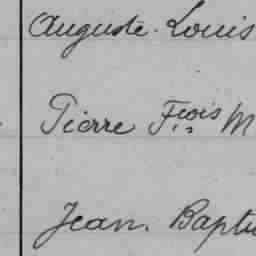 Auguste. Louis
Pierre Fçois M
Jean. Baptis